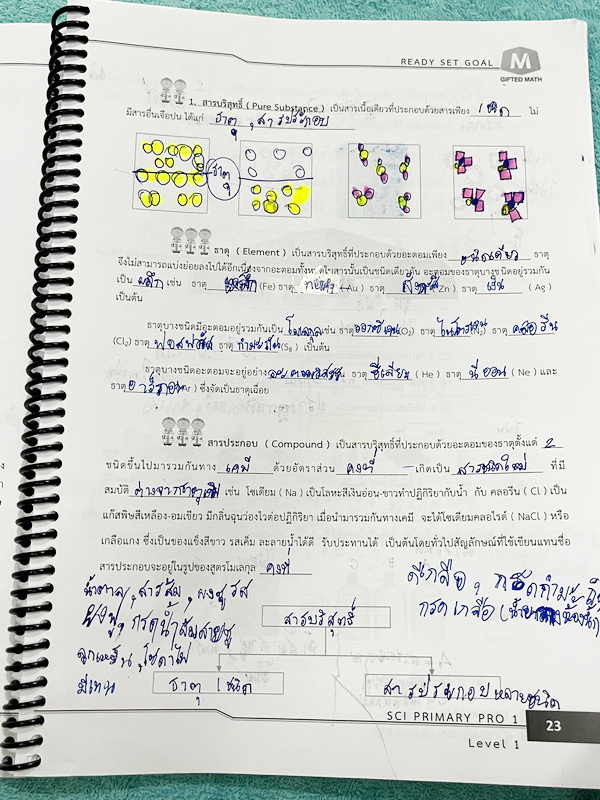 READY SET GOAL
M
GIFTED MATH
1. สารบริสุทธิ์ ( Pure Substance ) เป็นสารเนื้อเดียวที่ประกอบด้วยสารเพียง 1 ชนิด ไม่
มีสารอื่นเจือปน ได้แก่ ธาตุ , สารประกอบ
ธาตุ
ธาตุ ( Element ) เป็นสารบริสุทธิ์ที่ประกอบด้วยอะตอมเพียง ชนิดเดียว ธาตุ
จึงไม่สามารถแบ่งย่อยลงไปได้อีกเนื่องจากอะตอมทั้งหมดในสารนั้นเป็นชนิดเดียวกัน อะตอมของธาตุบางชนิดอยู่รวมกัน
เป็น ผลึก เช่น ธาตุ เหล็ก (Fe) ธาตุ ทองคำ (Au ) ธาตุ สังกะสี (Zn ) ธาตุ เงิน ( Ag )
เป็นต้น
ธาตุบางชนิดมีอะตอมอยู่รวมกันเป็น โมเลกุล เช่น ธาตุ ออกซิเจน (O₂) ธาตุ ไนโตรเจน ธาตุ คลอรีน
(Cl₂) ธาตุ ฟอสฟอรัส ธาตุ กำมะถัน (S₈ ) เป็นต้น
ธาตุบางชนิดอะตอมจะอยู่อย่าง ธาตุ ฮีเลียม ( He ) ธาตุ นีออน ( Ne ) และ
ธาตุ อาร์กอน ( Ar ) ซึ่งจัดเป็นธาตุเฉื่อย
สารประกอบ ( Compound ) เป็นสารบริสุทธิ์ที่ประกอบด้วยอะตอมของธาตุตั้งแต่ 2
ชนิดขึ้นไปมารวมกันทาง เคมี ด้วยอัตราส่วน คงที่ เกิดเป็น สารชนิดใหม่ ที่มี
สมบัติ ต่างจากธาตุเดิม เช่น โซเดียม ( Na ) เป็นโลหะสีเงินอ่อน-ขาวทำปฏิกิริยากับน้ำ กับ คลอรีน ( Cl ) เป็น
แก๊สพิษสีเหลือง-อมเขียว มีกลิ่นฉุนว่องไวต่อปฏิกิริยา เมื่อนำมารวมกันทางเคมี จะได้โซเดียมคลอไรด์ ( NaCl ) หรือ
เกลือแกง ซึ่งเป็นของแข็งสีขาว รสเค็ม ละลายน้ำได้ดี รับประทานได้ เป็นต้นโดยทั่วไปสัญลักษณ์ที่ใช้เขียนแทนชื่อ
สารประกอบจะอยู่ในรูปของสูตรโมเลกุล คงที่
น้ำตาล , สารส้ม , ผงชูรส
ผงฟู , กรดน้ำส้มสายชู
ลูกเหม็น , โซดาไฟ
มีเทน
ดีเกลือ , กรดกำมะถัน
กรดเกลือ
สารบริสุทธิ์
ธาตุ 1 ชนิด
สารประกอบหลายชนิด
SCI PRIMARY PRO 1
23
Level 1